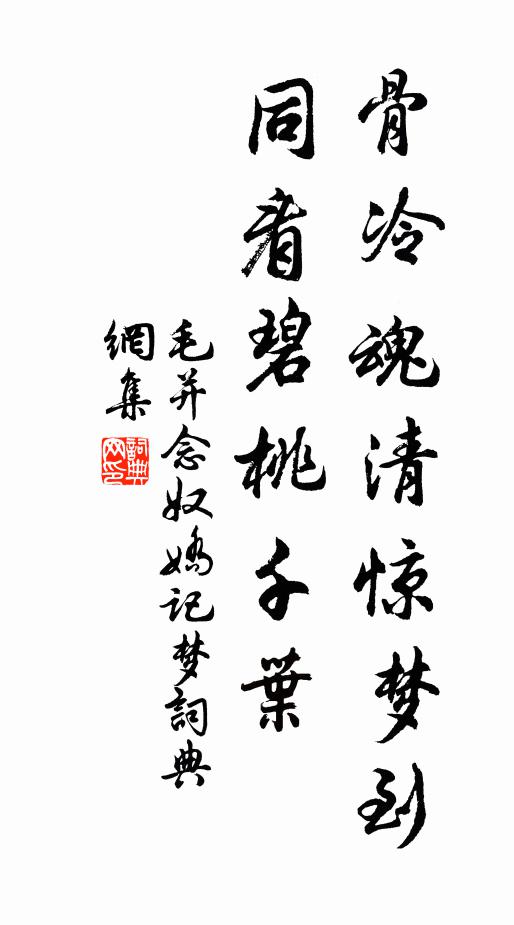 骨冷魂清惊梦到
同看碧桃千葉
毛幵念奴嬌记梦詞典
網集
詞典
网印